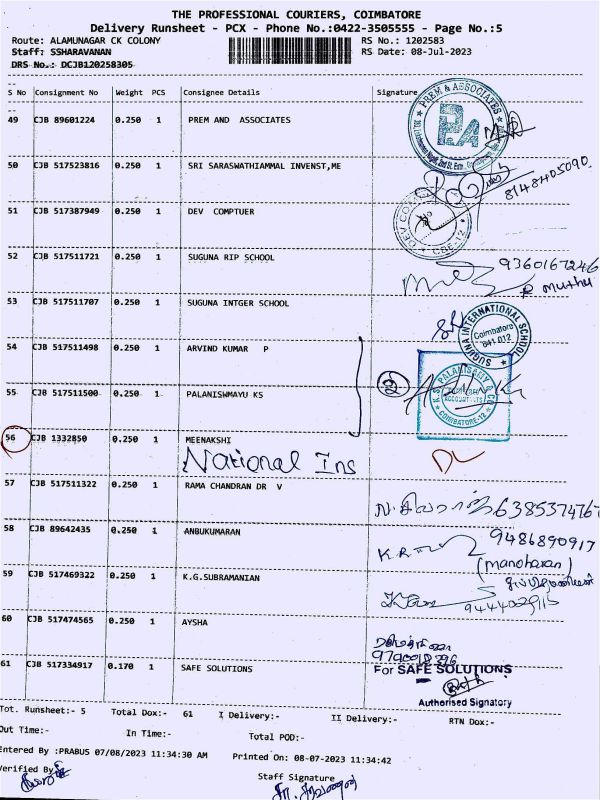 THE PROFESSIONAL COURIERS, COIMBATORE
Delivery Runsheet - PCX - Phone No.:0422-3505555 - Page No.:5
Route: ALAMUNAGAR CK COLONY RS No.: 1202583
Staff: SSHARAVANAN RS Date: 08-Jul-2023
DRS No.: DCJB120258305
S No Consignment No Weight PCS Consignee Details Signature
49 CJB 89601224 0.250 1 PREM AND ASSOCIATES
PREM & ASSOCIATES
50 CJB 517523816 0.250 1 SRI SARASWATHIAMMAL INVENST,ME
8148405090
51 CJB 517387949 0.250 1 DEV COMPTUER
DEV COM
CBE-12
52 CJB 517511721 0.250 1 SUGUNA RIP SCHOOL
9360167246
R muthu
53 CJB 517511707 0.250 1 SUGUNA INTGER SCHOOL
SUGUNA INTERNATIONAL SCHOOL
Coimbatore
641 012
54 CJB 517511498 0.250 1 ARVIND KUMAR P
55 CJB 517511500 0.250 1 PALANISWMAYU KS
2
K.S. PALANISAMY & CO
ACCOUNTANTS
COIMBATORE-12
56 CJB 1332850 0.250 1 MEENAKSHI
National Ins
DL
57 CJB 517511322 0.250 1 RAMA CHANDRAN DR V
6385374767
58 CJB 89642435 0.250 1 ANBUKUMARAN
9486890917
(manoharan)
59 CJB 517469322 0.250 1 K.G.SUBRAMANIAN
9444029115
60 CJB 517474565 0.250 1 AYSHA
61 CJB 517334917 0.170 1 SAFE SOLUTIONS
For SAFE SOLUTIONS
Authorised Signatory
Tot. Runsheet:- 5 Total Dox:- 61 I Delivery:- II Delivery:- RTN Dox:-
Out Time:- In Time:- Total POD:-
Entered By :PRABUS 07/08/2023 11:34:30 AM Printed On: 08-07-2023 11:34:42
Verified By
Staff Signature